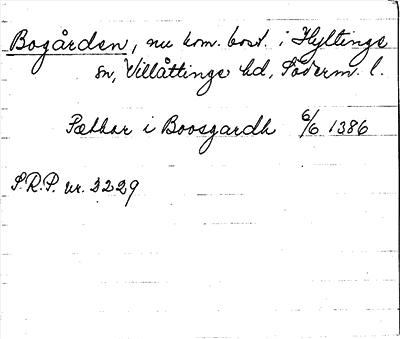 Bogården, nu kom. bost. i Hyltinge
sn, Villåttinge hd, Söderm. l.
Pæthar i Boosgardh 6/6 1386
S.R.P. nr. 2229